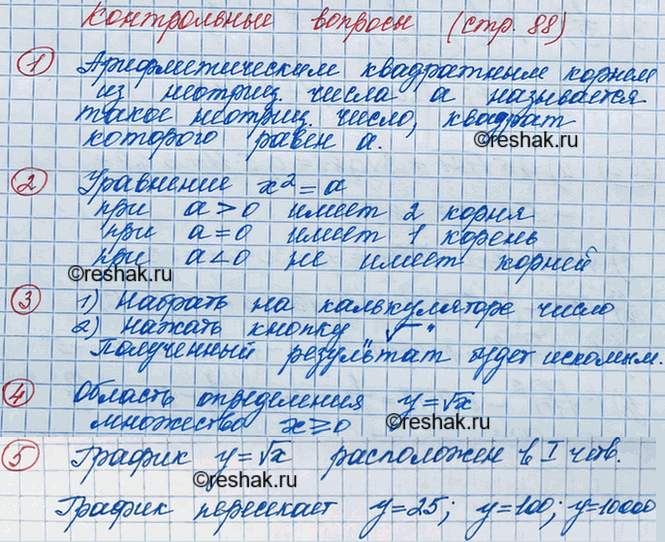 Контрольные вопросы (стр. 88)
① Арифметическим квадратным корнем
из неотриц. числа а называется
такое неотриц. число, квадрат
которого равен а.
©reshak.ru
② Уравнение x² = a
при a > 0 имеет 2 корня
при a = 0 имеет 1 корень
при a < 0 не имеет корней
©reshak.ru
③ 1) Набрать на калькуляторе число
2) Нажать кнопку „√“
Полученный результат будет искомым.
④ Область определения y = √x
множество x ≥ 0
©reshak.ru
⑤ График y = √x расположен в I четв.
©reshak.ru
График пересекает y = 25; y = 100; y = 10000